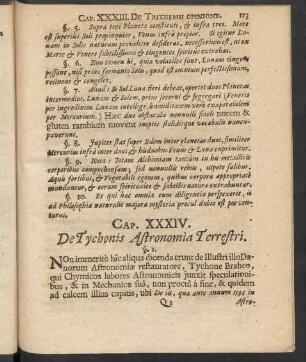 CAP. XXXIII. DE TRITHEMII OPINIONE. 123
§. 5. Supra tres Planetæ constituti, & infra tres. Mars
est superius Soli propinquior, Venus infrà proprior. Si igitur Lu-
nam in Solis naturam provehere desideras, necessarium est, ut ex
Marte & Venere subtilissimum & tingentes spiritus extrahas.
§. 6. Non tamen hi, quia volatiles sunt, Lunam tingere
possunt, nisi prius fermento Solis, quod est omnium perfectissimum,
retineant & congeles.
§. 7. Aliud: Si Sol Luna fieri debeat, oportet duos Planetas
intermedios, Lunam & Solem, prius secerni & segregari (Veneris
per ingredientem
per Mercurium.) Hæc duo obstacula nonnulli sicuti norem &
gluten rambium movent ineptè
cuperunt.
§. 8. Jupiter stat super Solem inter planetas duos, similiter
Mercurius infrà inter duos, & hi duobus Venus & Luna exprimitur.
§. 9. Nota: Totam Alchimiam tantùm in his metallicis
corporibus comprehensam, sed nonnullis rebus, utpote salibus,
Aquis fortibus, & Vegetabili egenum, quibus corpora appropriatè
mundantur, & eorum spirituales & subtiles natura extrahantur.
§. 10. Et qui hæc omnia cum diligentia perspexerit, is
ad Philosophiæ naturalis majora mysteria procul dubio est per-
venturus.
CAP. XXXIV.
De Tychonis Astronomia Terrestri.
§. 1.
NOn immeritò hîc aliqua dicenda erunt de Illustri illo Da-
norum Astronomiæ restauratore, Tychone Braheo,
qui Chymicos labores Astronomicis junxit speculationi-
bus, & in Mechanica suâ, non procul à fine, & quidem
ad calcem illius capitis, ubi De iis, quæ ante annum 1595 in
Q 2 Astro-